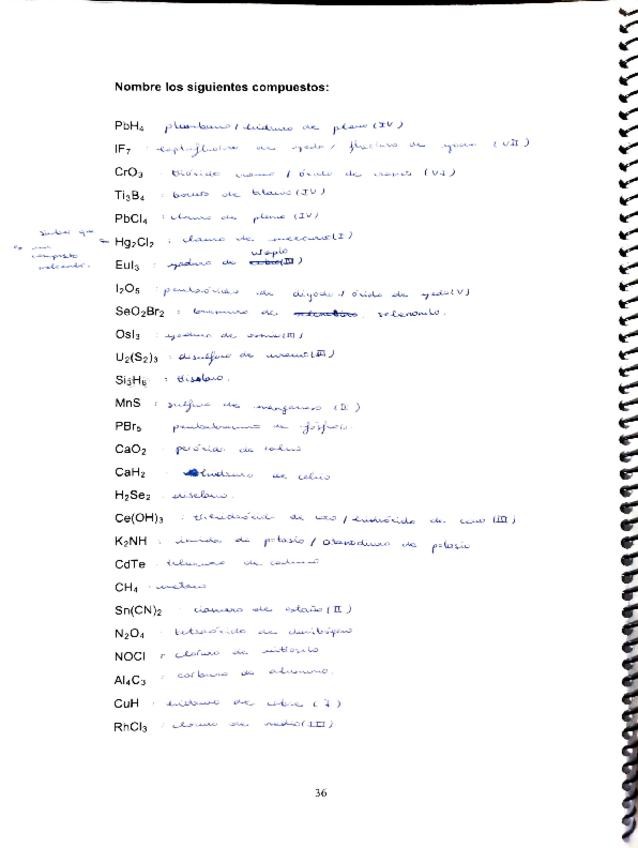 Nombre los siguientes compuestos:
PbH4 plumbano / hidruro de plomo (IV)
IF7 : heptafluoruro de yodo / fluoruro de yodo (VII)
CrO3 : trióxido cromo / óxido de cromo (VI)
Ti3B4 : boruro de titanio (IV)
PbCl4 : cloruro de plomo (IV)
Hg2Cl2 : cloruro de mercurio (I)
EuI3 : yoduro de europio (III)
I2O5 : pentaóxido de diyodo / óxido de yodo (V)
SeO2Br2 : bromuro de selenonilo.
OsI3 : yoduro de osmio (III)
U2(S2)3 : disulfuro de uranio (III)
Si3H8 : trisilano.
MnS : sulfuro de manganeso (II)
PBr5 pentabromuro de fósforo
CaO2 : peróxido de calcio
CaH2 : hidruro de calcio
H2Se2 : diselano.
Ce(OH)3 : trihidróxido de cerio / hidróxido de cerio (III)
K2NH : imida de potasio / de potasio
CdTe : telururo de cadmio
CH4 : metano
Sn(CN)2 : cianuro de estaño (II)
N2O4 : tetraóxido de dinitrógeno
NOCl : cloruro de nitrosilo
Al4C3 : carburo de aluminio.
CuH : hidruro de cobre (I)
RhCl3 : cloruro de rodio (III)
36